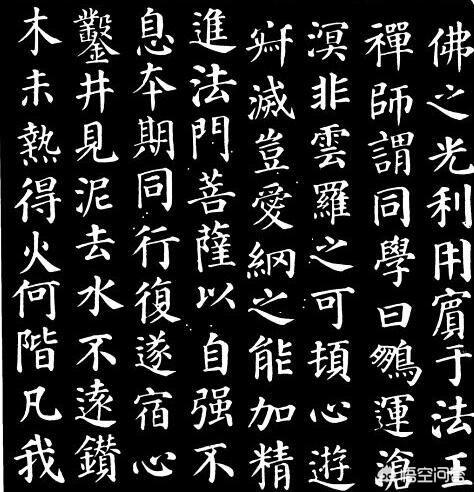 佛之光利用賓于法王
禪師謂同學曰鵬運滄
溟非雲羅之可頓心遊
寂滅豈愛網之能加精
進法門菩薩以自强不
息本期同行復遂宿心
鑿井見泥去水不遠鑽
木未熱得火何階凡我
悟空问答